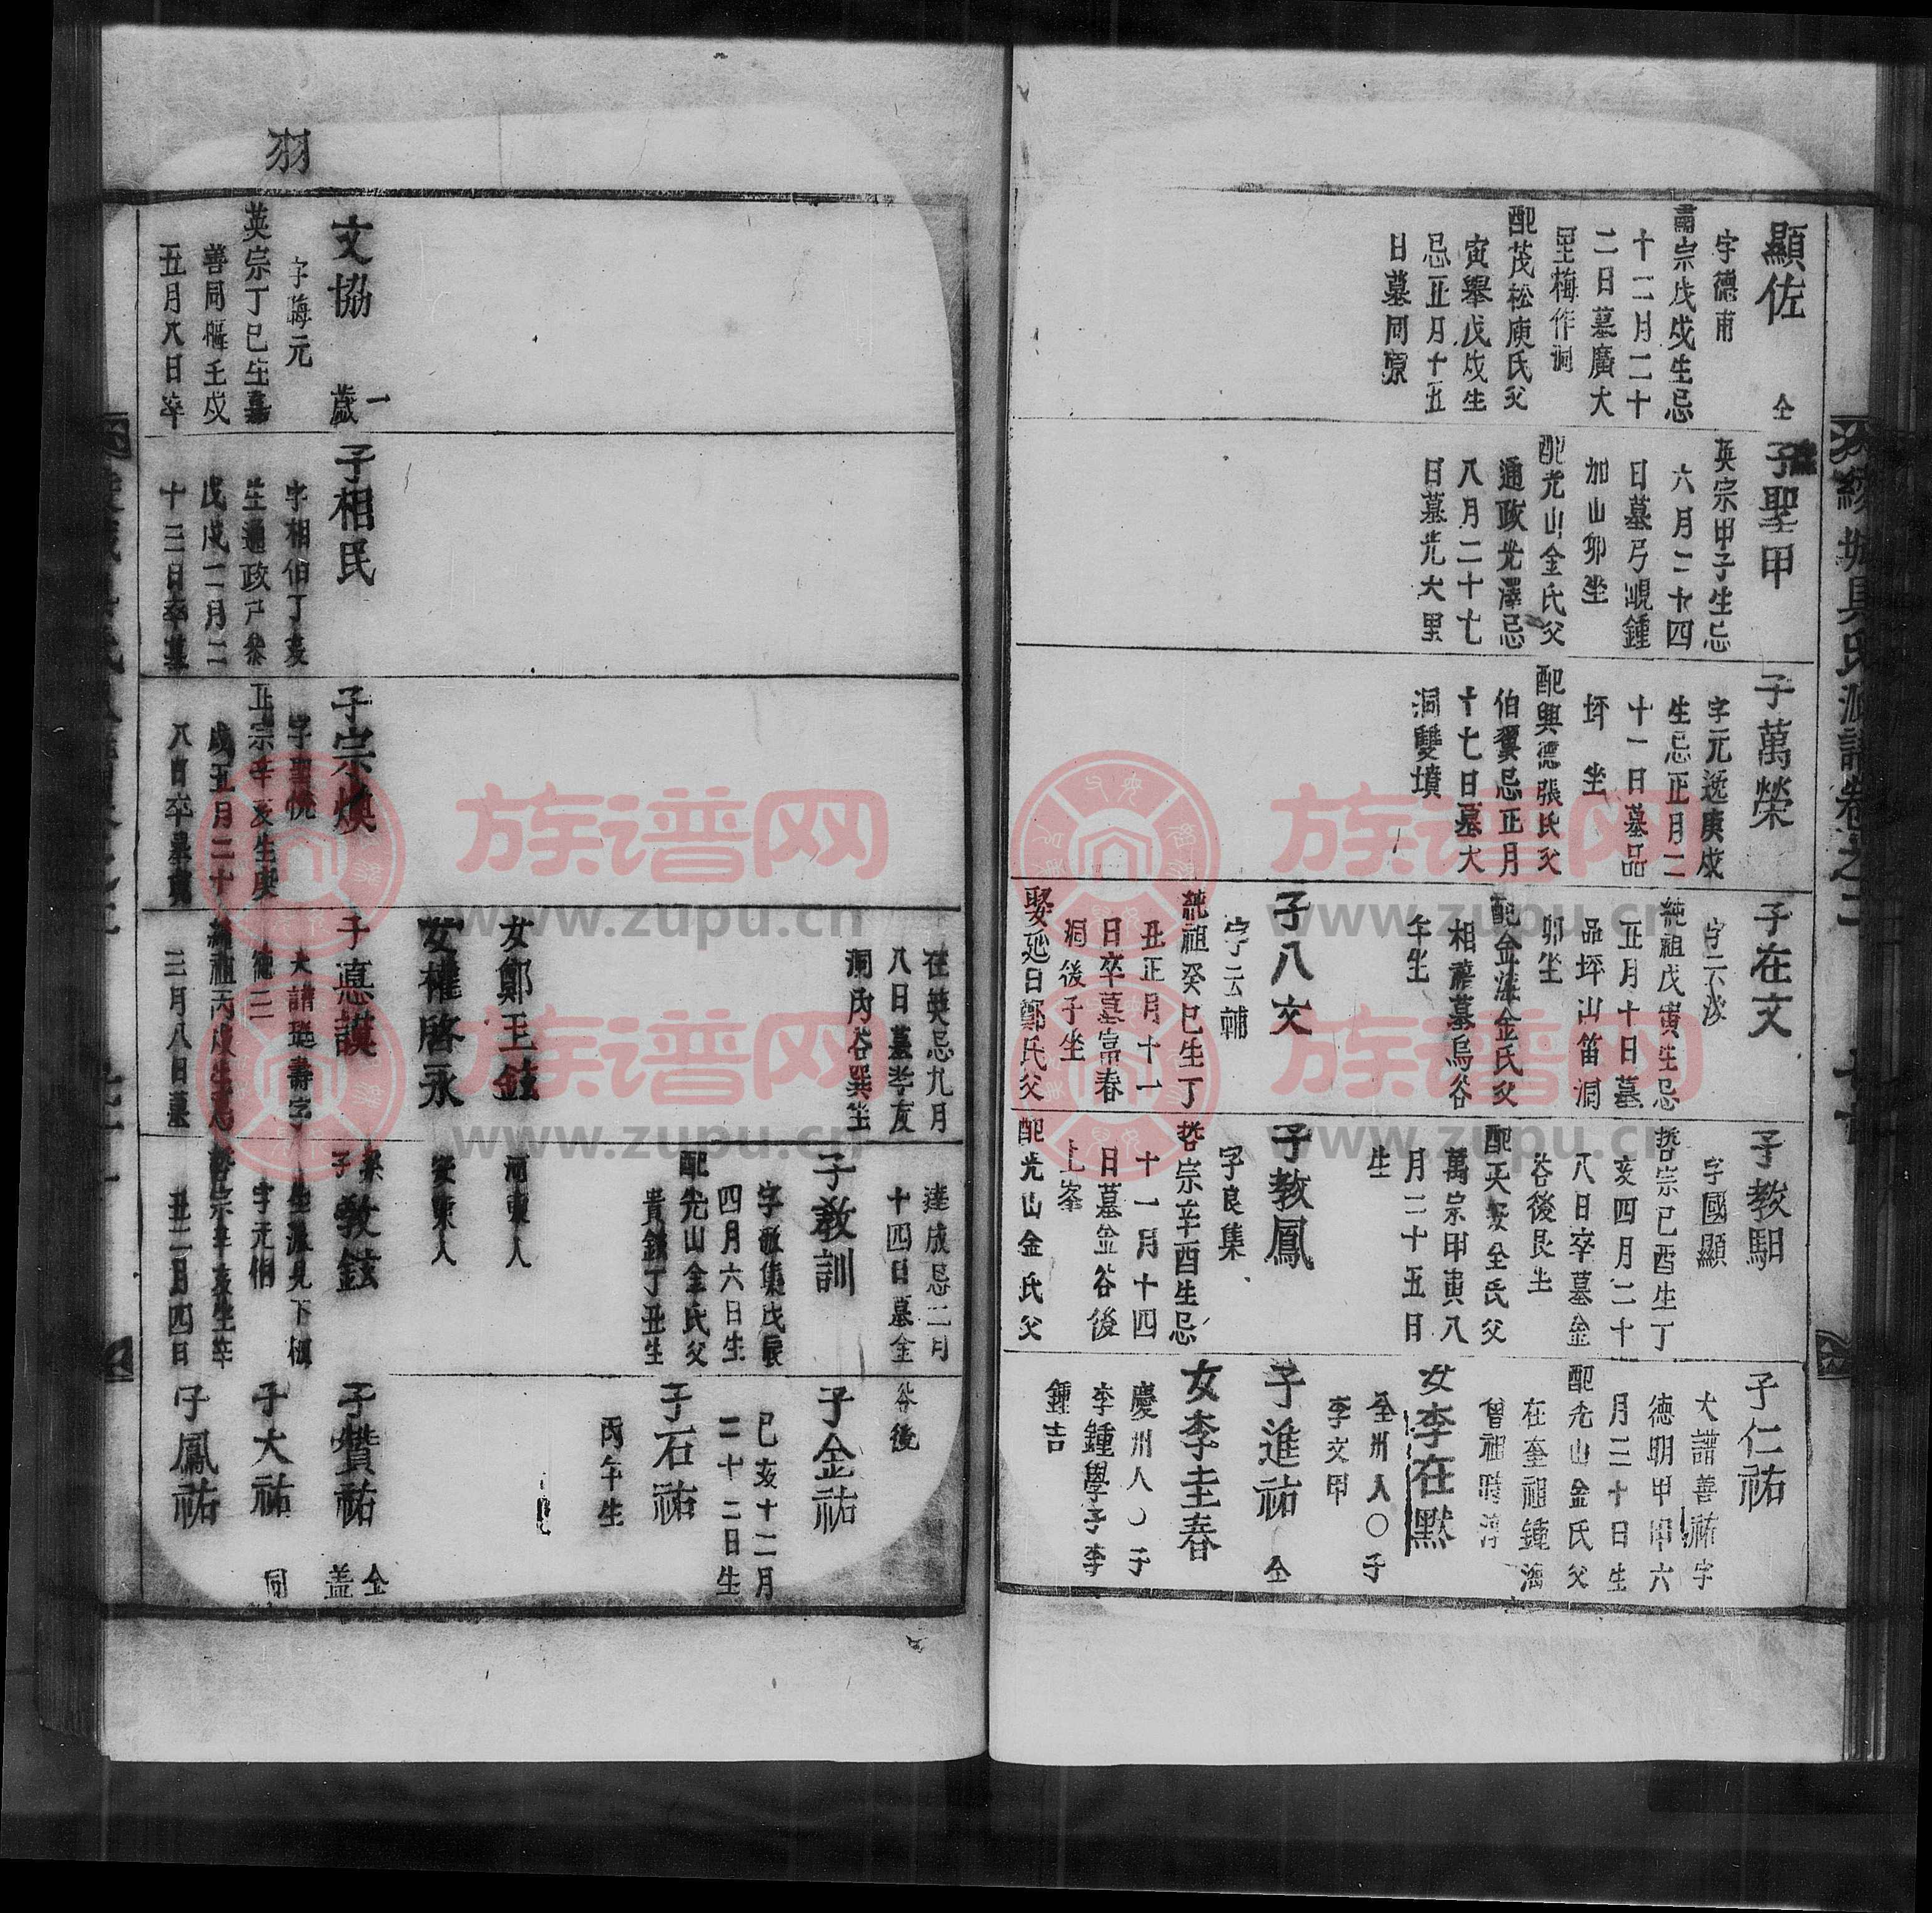 綾城具氏派譜卷之二
顯佐
仝
字德甫
肅宗戊戌生忌
十二月二十
二日墓廣大
里梅作洞
配茂松庾氏父
寅舉戊戌生
忌正月十五
日墓同原
子聖甲
英宗甲子生忌
六月二十四
日墓弓峴鍾
加山卯坐
配光山金氏父
通政光澤忌
八月二十七
日墓光大里
子萬榮
字元逸庚戌
生忌正月二
十一日墓品
坪 坐
配興德張氏父
伯翼忌正月
十七日墓大
洞雙墳
子在文
純祖戊寅生忌
正月十日墓
品坪山笛洞
卯坐
配金海金氏父
相禧墓烏谷
午坐
子八文
字云輔
純祖癸巳生丁
丑正月十一
日卒墓富春
洞後子坐
娶延日鄭氏父
子教馹
字國顯
哲宗己酉生丁
亥四月二十
八日卒墓金
谷後艮坐
配天安全氏父
萬宗甲寅八
月二十五日
生
子教鳳
字良集
哲宗辛酉生忌
十一月十四
日墓金谷後
上峯
配光山金氏父
子仁祐
大譜善祐字
德明甲申六
月三十日生
配光山金氏父
在奎祖鍾海
曾祖時淳
女李在默
全州人○子
李文甲
子進祐
仝
女李圭春
慶州人○子
李鍾學子李
鍾吉
在英忌九月
八日墓孝友
洞內谷巽坐
女鄭王鉉
河東人
女權啓永
安東人
達成忌二月
十四日墓金
谷後
子教訓
字敬集戊辰
四月六日生
配光山金氏父
貴鉉丁丑生
子金祐
己亥十二月
二十二日生
子石祐
丙午生
羽
文協
一
歲
字海元
英宗丁巳生嘉
善同樞壬戌
五月八日卒
子相民
字相伯丁亥
生通政戶參
戊戌二月二
十三日卒墓
子宗煥
字聖悅
正宗辛亥生庚
戌五月二十
八日卒墓
子憙謨
大譜珽壽字
德三
純祖丙戌生忌
三月八日墓
系子教鉉
生派見下樞
字元伯
哲宗辛亥生卒
丑二月四日
子贊祐
仝
益
子大祐
同
子鳳祐
族谱网
www.zupu.cn
族谱网
www.zupu.cn
族谱网
www.zupu.cn
族谱网
www.zupu.cn